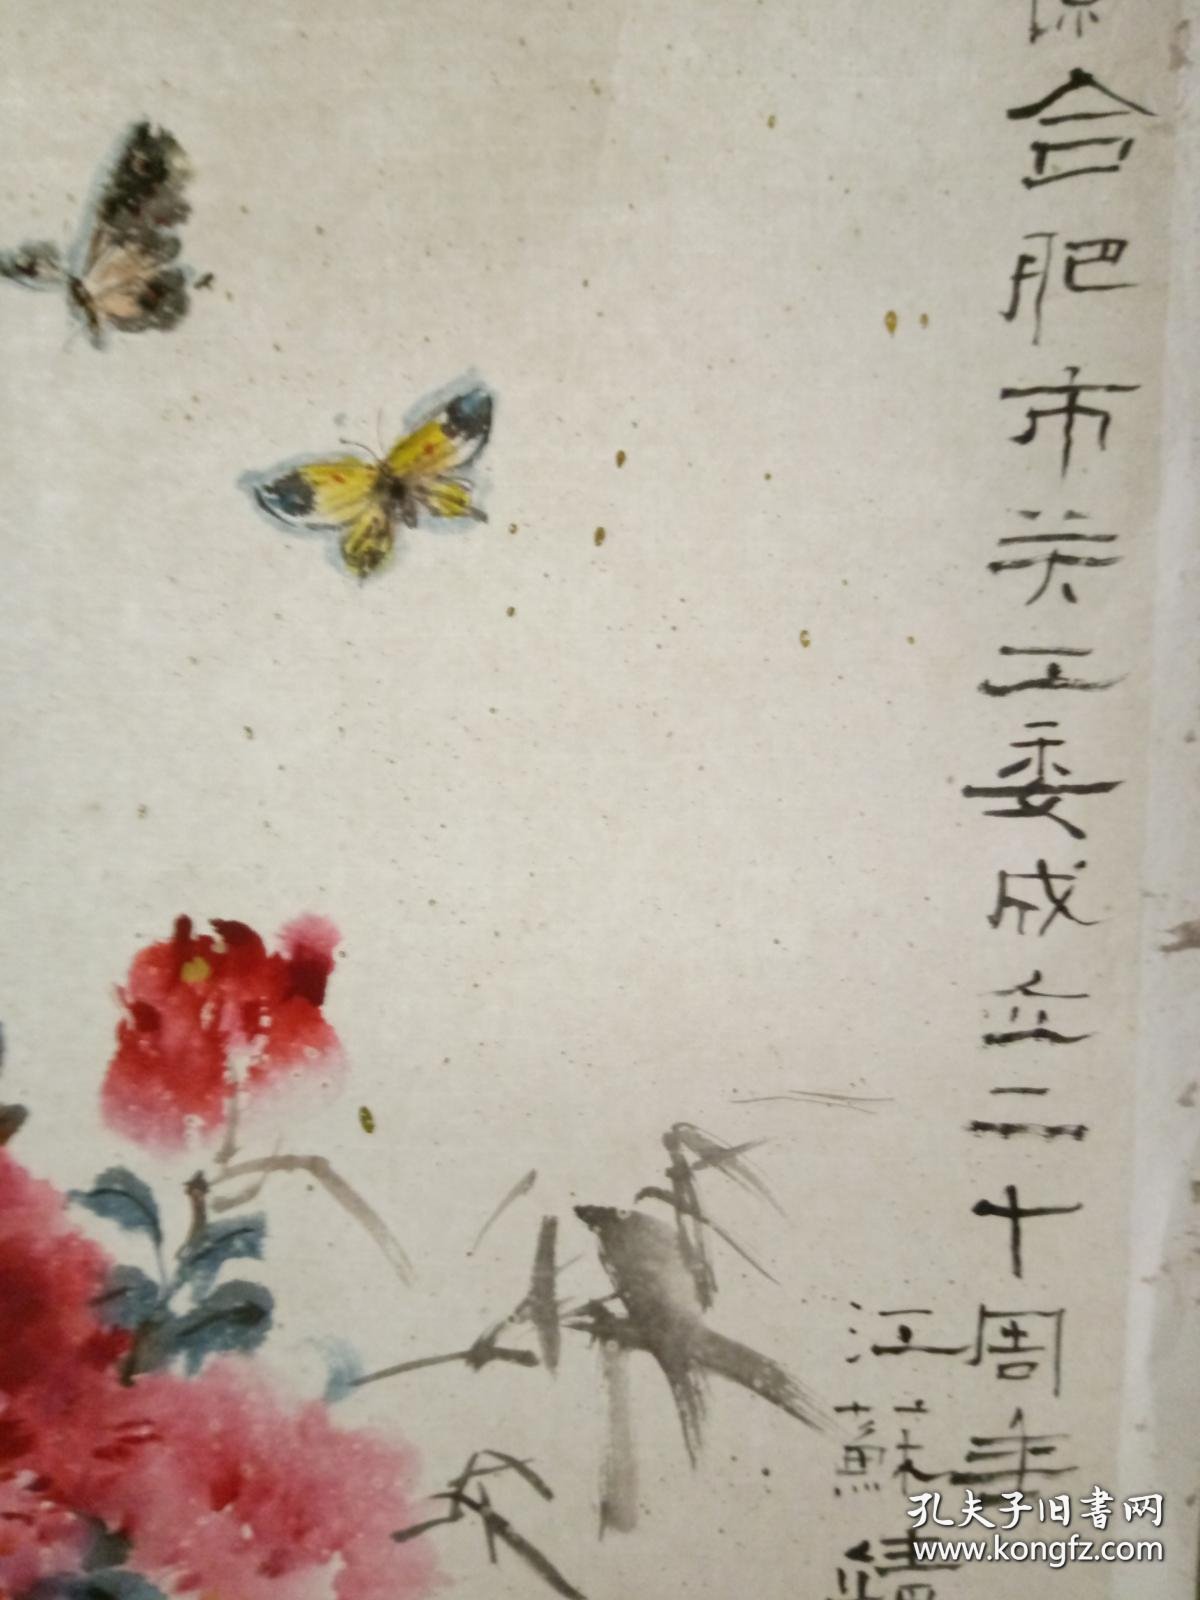 合肥市关工委成立二十周年
江蘇
孔夫子旧书网
www.kongfz.com